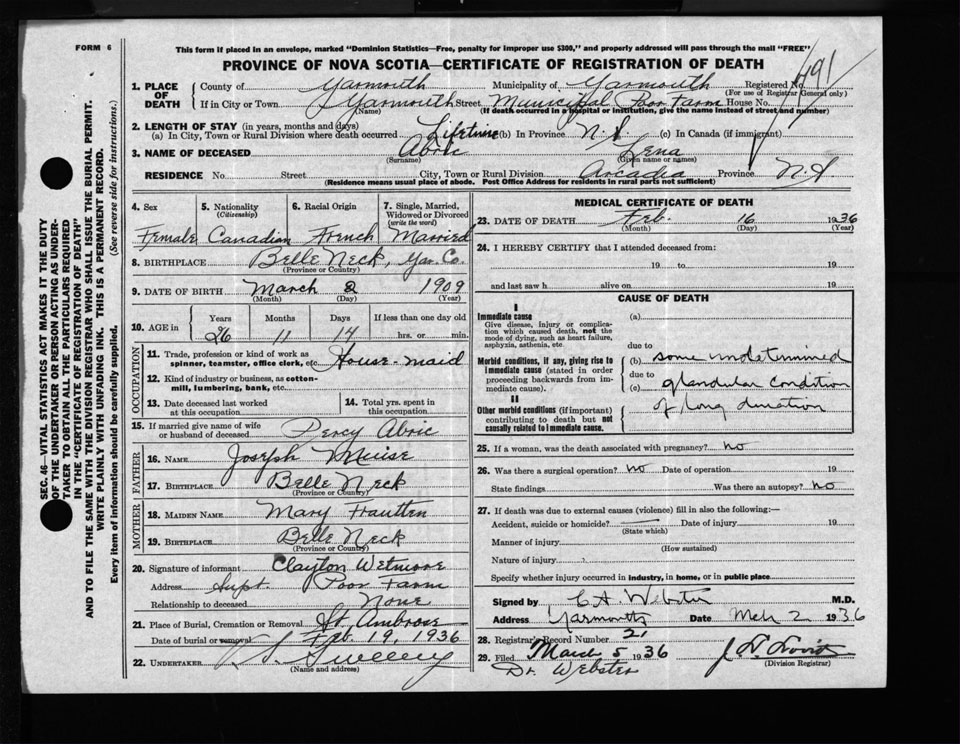 FORM 6
This form if placed in an envelope, marked "Dominion Statistics—Free, penalty for improper use $300," and properly addressed will pass through the mail "FREE"
PROVINCE OF NOVA SCOTIA—CERTIFICATE OF REGISTRATION OF DEATH
SEC. 46—VITAL STATISTICS ACT MAKES IT THE DUTY
OF THE UNDERTAKER OR PERSON ACTING AS UNDER-
TAKER TO OBTAIN ALL THE PARTICULARS REQUIRED
IN THE "CERTIFICATE OF REGISTRATION OF DEATH"
AND TO FILE THE SAME WITH THE DIVISION REGISTRAR WHO SHALL ISSUE THE BURIAL PERMIT.
WRITE PLAINLY WITH UNFADING INK. THIS IS A PERMANENT RECORD.
Every item of information should be carefully supplied. (See reverse side for instructions.)
1. PLACE OF DEATH County of Yarmouth Municipality of Yarmouth Registered No. 491
(For use of Registrar General only)
If in City or Town Yarmouth Street Municipal Poor Farm House No.
(Name) (If death occurred in a hospital or institution, give the name instead of street and number)
2. LENGTH OF STAY (in years, months and days)
(a) In City, Town or Rural Division where death occurred Lifetime (b) In Province N.S. (c) In Canada (if immigrant)
3. NAME OF DECEASED Abric Lena
(Surname) (Given name or names)
RESIDENCE No. Street City, Town or Rural Division Arcadia Province N.S
(Residence means usual place of abode. Post Office Address for residents in rural parts not sufficient)
4. Sex 5. Nationality (Citizenship) 6. Racial Origin 7. Single, Married, Widowed or Divorced (write the word)
Female Canadian French Married
8. BIRTHPLACE Belle Neck, Yar. Co.
(Province or Country)
9. DATE OF BIRTH March 2 1909
(Month) (Day) (Year)
10. AGE in Years Months Days If less than one day old
26 11 14 hrs. or min.
OCCUPATION
11. Trade, profession or kind of work as spinner, teamster, office clerk, etc. House-maid
12. Kind of industry or business, as cotton-mill, lumbering, bank, etc.
13. Date deceased last worked at this occupation 14. Total yrs. spent in this occupation
15. If married give name of wife or husband of deceased Percy Abric
FATHER
16. NAME Joseph Muise
17. BIRTHPLACE Belle Neck
(Province or Country)
MOTHER
18. MAIDEN NAME Mary
19. BIRTHPLACE Belle Neck
(Province or Country)
20. Signature of informant Clayton Wetmore
Address Supt. Poor Farm
Relationship to deceased None
21. Place of Burial, Cremation or Removal St. Ambrose
Date of burial or removal Feb 19, 1936
22. UNDERTAKER Sweeny
(Name and address)
MEDICAL CERTIFICATE OF DEATH
23. DATE OF DEATH Feb. 16 1936
(Month) (Day) (Year)
24. I HEREBY CERTIFY that I attended deceased from:
19 to 19
and last saw h alive on 19
CAUSE OF DEATH
I
Immediate cause (a)
Give disease, injury or complication which caused death, not the mode of dying, such as heart failure, asphyxia, asthenia, etc.
due to
Morbid conditions, if any, giving rise to immediate cause (stated in order proceeding backwards from immediate cause).
(b) some undetermined
due to
(c) glandular condition
of long duration
II
Other morbid conditions (if important) contributing to death but not causally related to immediate cause.
25. If a woman, was the death associated with pregnancy? no
26. Was there a surgical operation? no Date of operation 19
State findings Was there an autopsy? no
27. If death was due to external causes (violence) fill in also the following:—
Accident, suicide or homicide? Date of injury 19
(State which)
Manner of injury
(How sustained)
Nature of injury
Specify whether injury occurred in industry, in home, or in public place
Signed by C.A. Webster M.D.
Address Yarmouth Date Mch 2 1936
28. Registrar's Record Number 21
29. Filed March 5 1936
(Division Registrar)
Dr. Webster